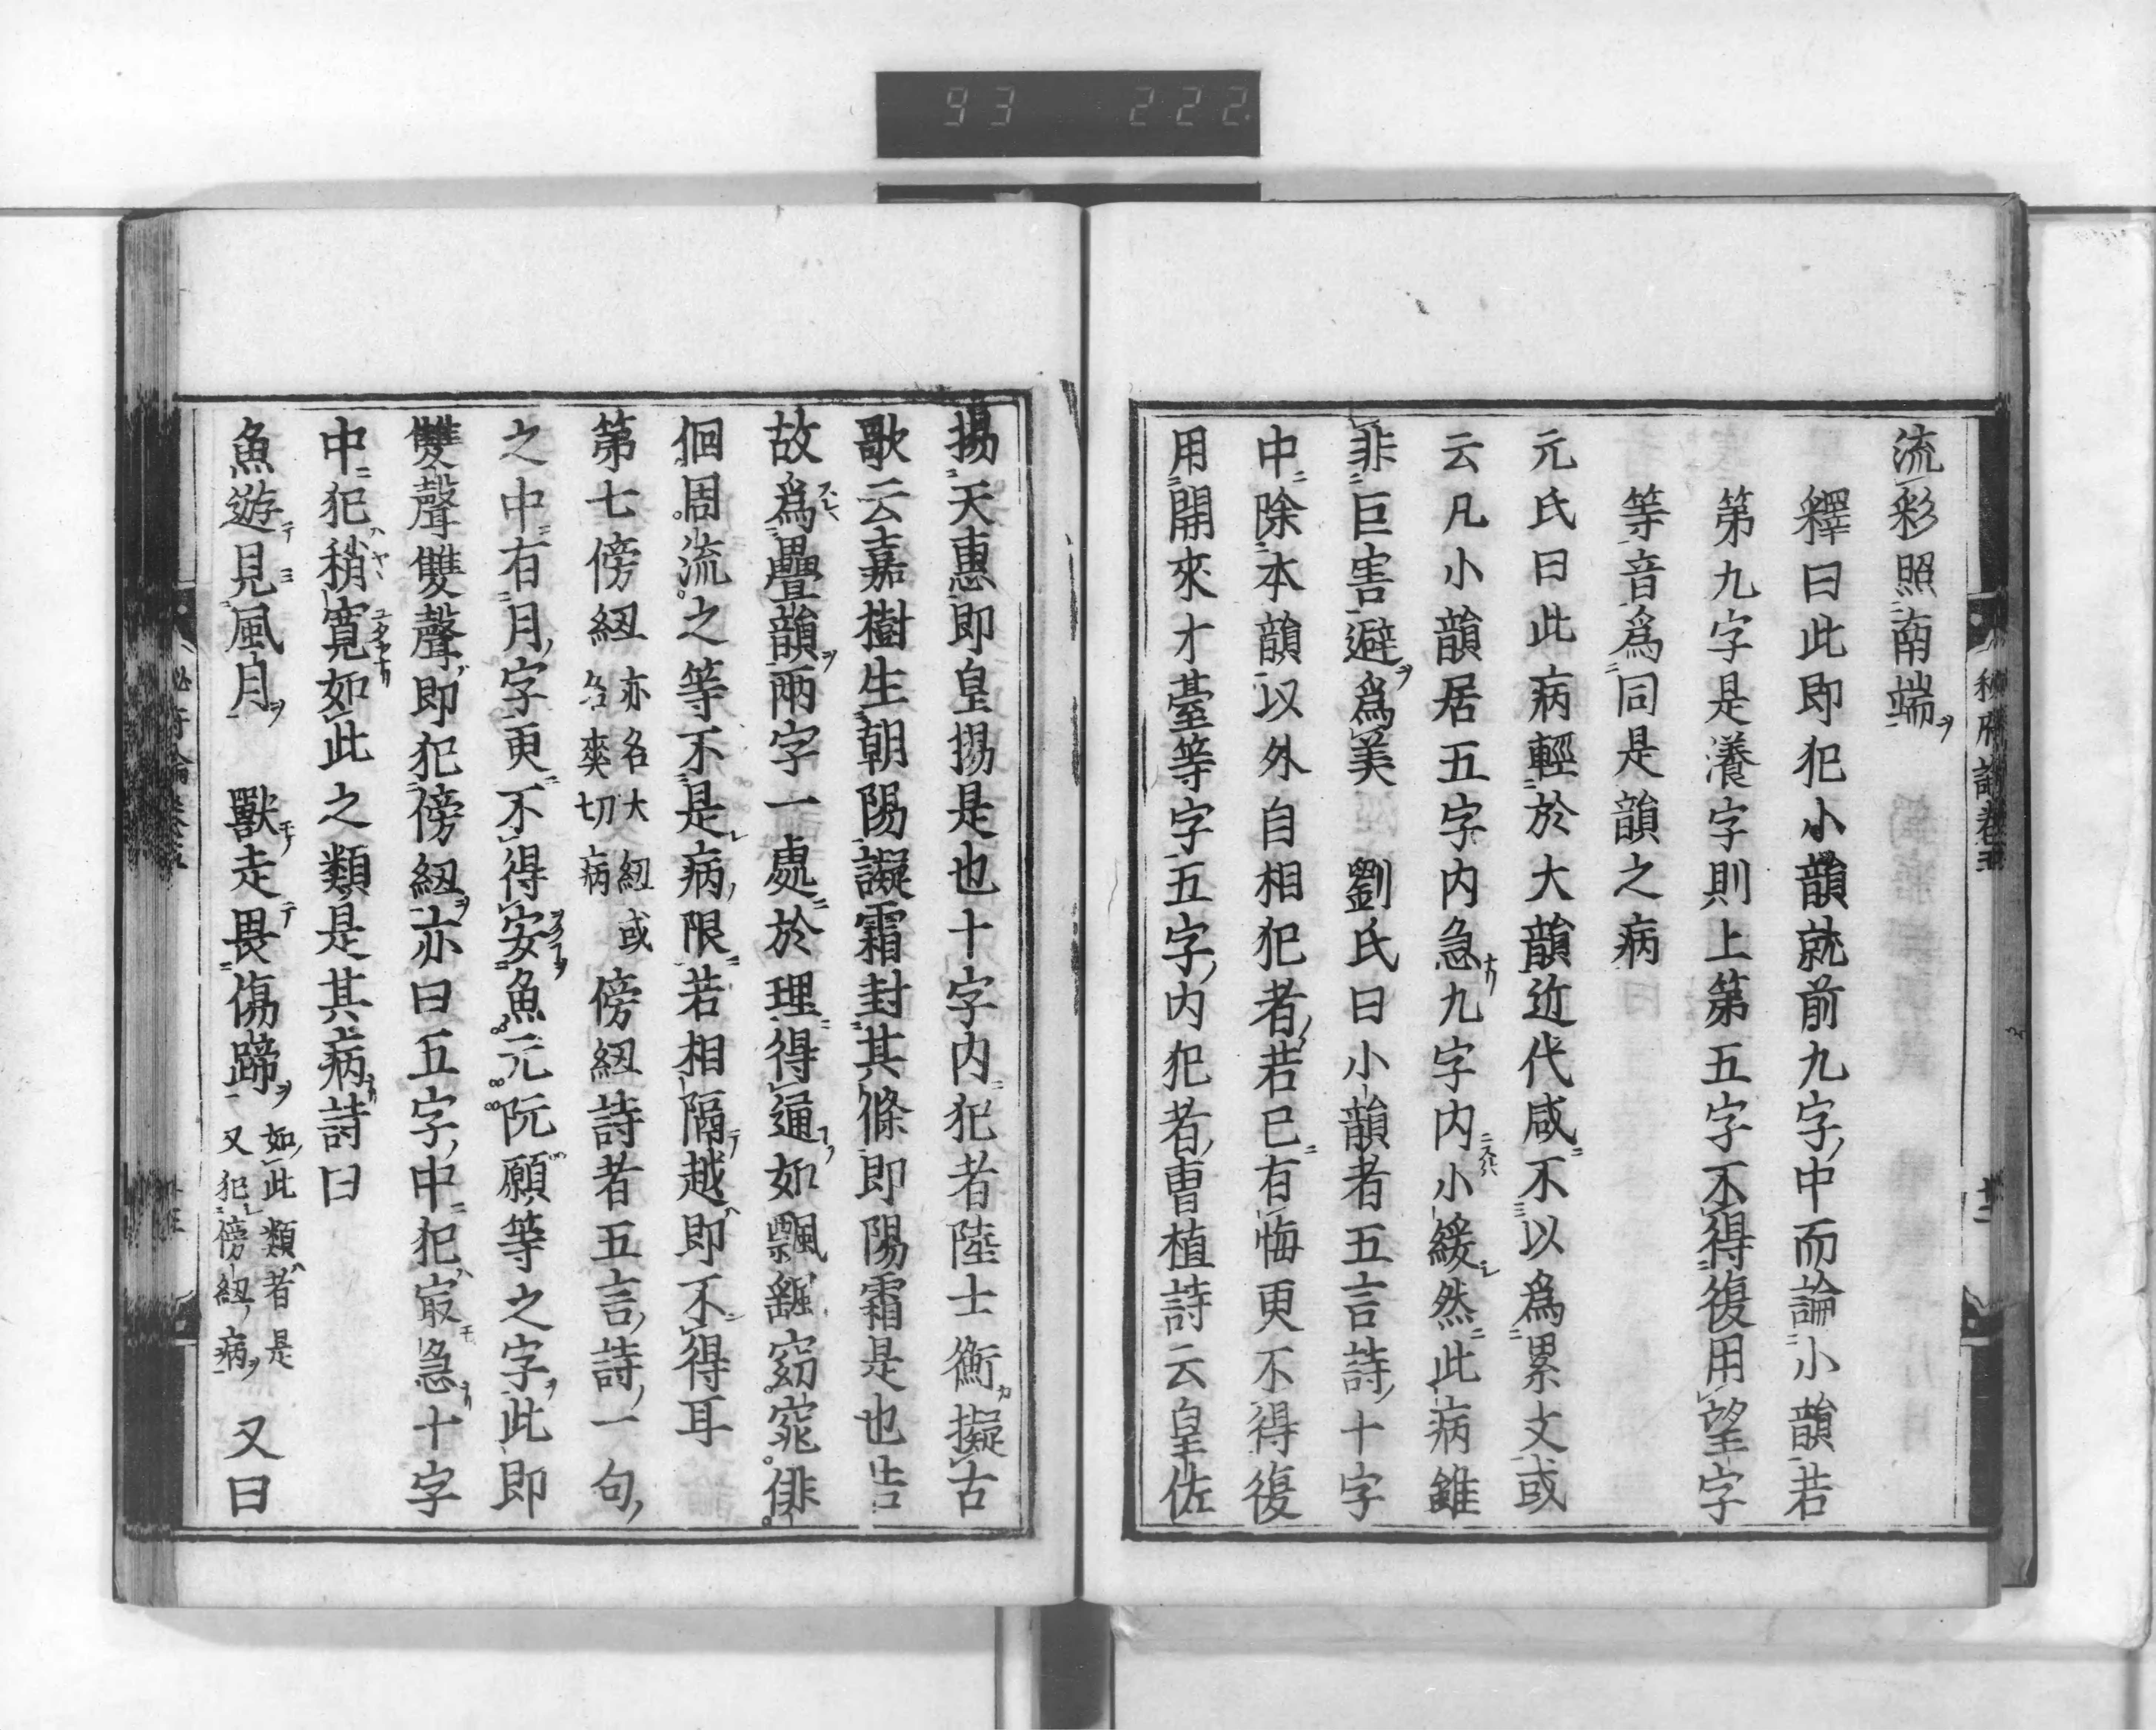 93 222
流彩照南端
釋曰此即犯小韻就前九字中而論小韻若
第九字是瀁字則上第五字不得復用望字
等音爲同是韻之病
元氏曰此病輕於大韻近代咸不以爲累文或
云凡小韻居五字内急九字内小緩然此病雖
非巨害避爲美　劉氏曰小韻者五言詩十字
中除本韻以外自相犯者若已有悔更不得復
用開來才臺等字五字内犯者曹植詩云皇佐
揚天惠即皇揚是也十字内犯者陸士衡擬古
歌云嘉樹生朝陽譺霜封其條即陽霜是也告
故爲疊韻兩字一處於理得通如飄颻窈窕俳
徊周流之等不是病限若相隔越即不得耳
第七傍紐亦名大紐或名爽切病傍紐詩者五言詩一句
之中有月字更不得安魚元阮願等之字此即
雙聲雙聲即犯傍紐亦曰五字中犯㝡急十字
中犯稍寬如此之類是其病詩曰
魚遊見風月　獸走畏傷蹄如此類者是又犯傍紐病　又曰